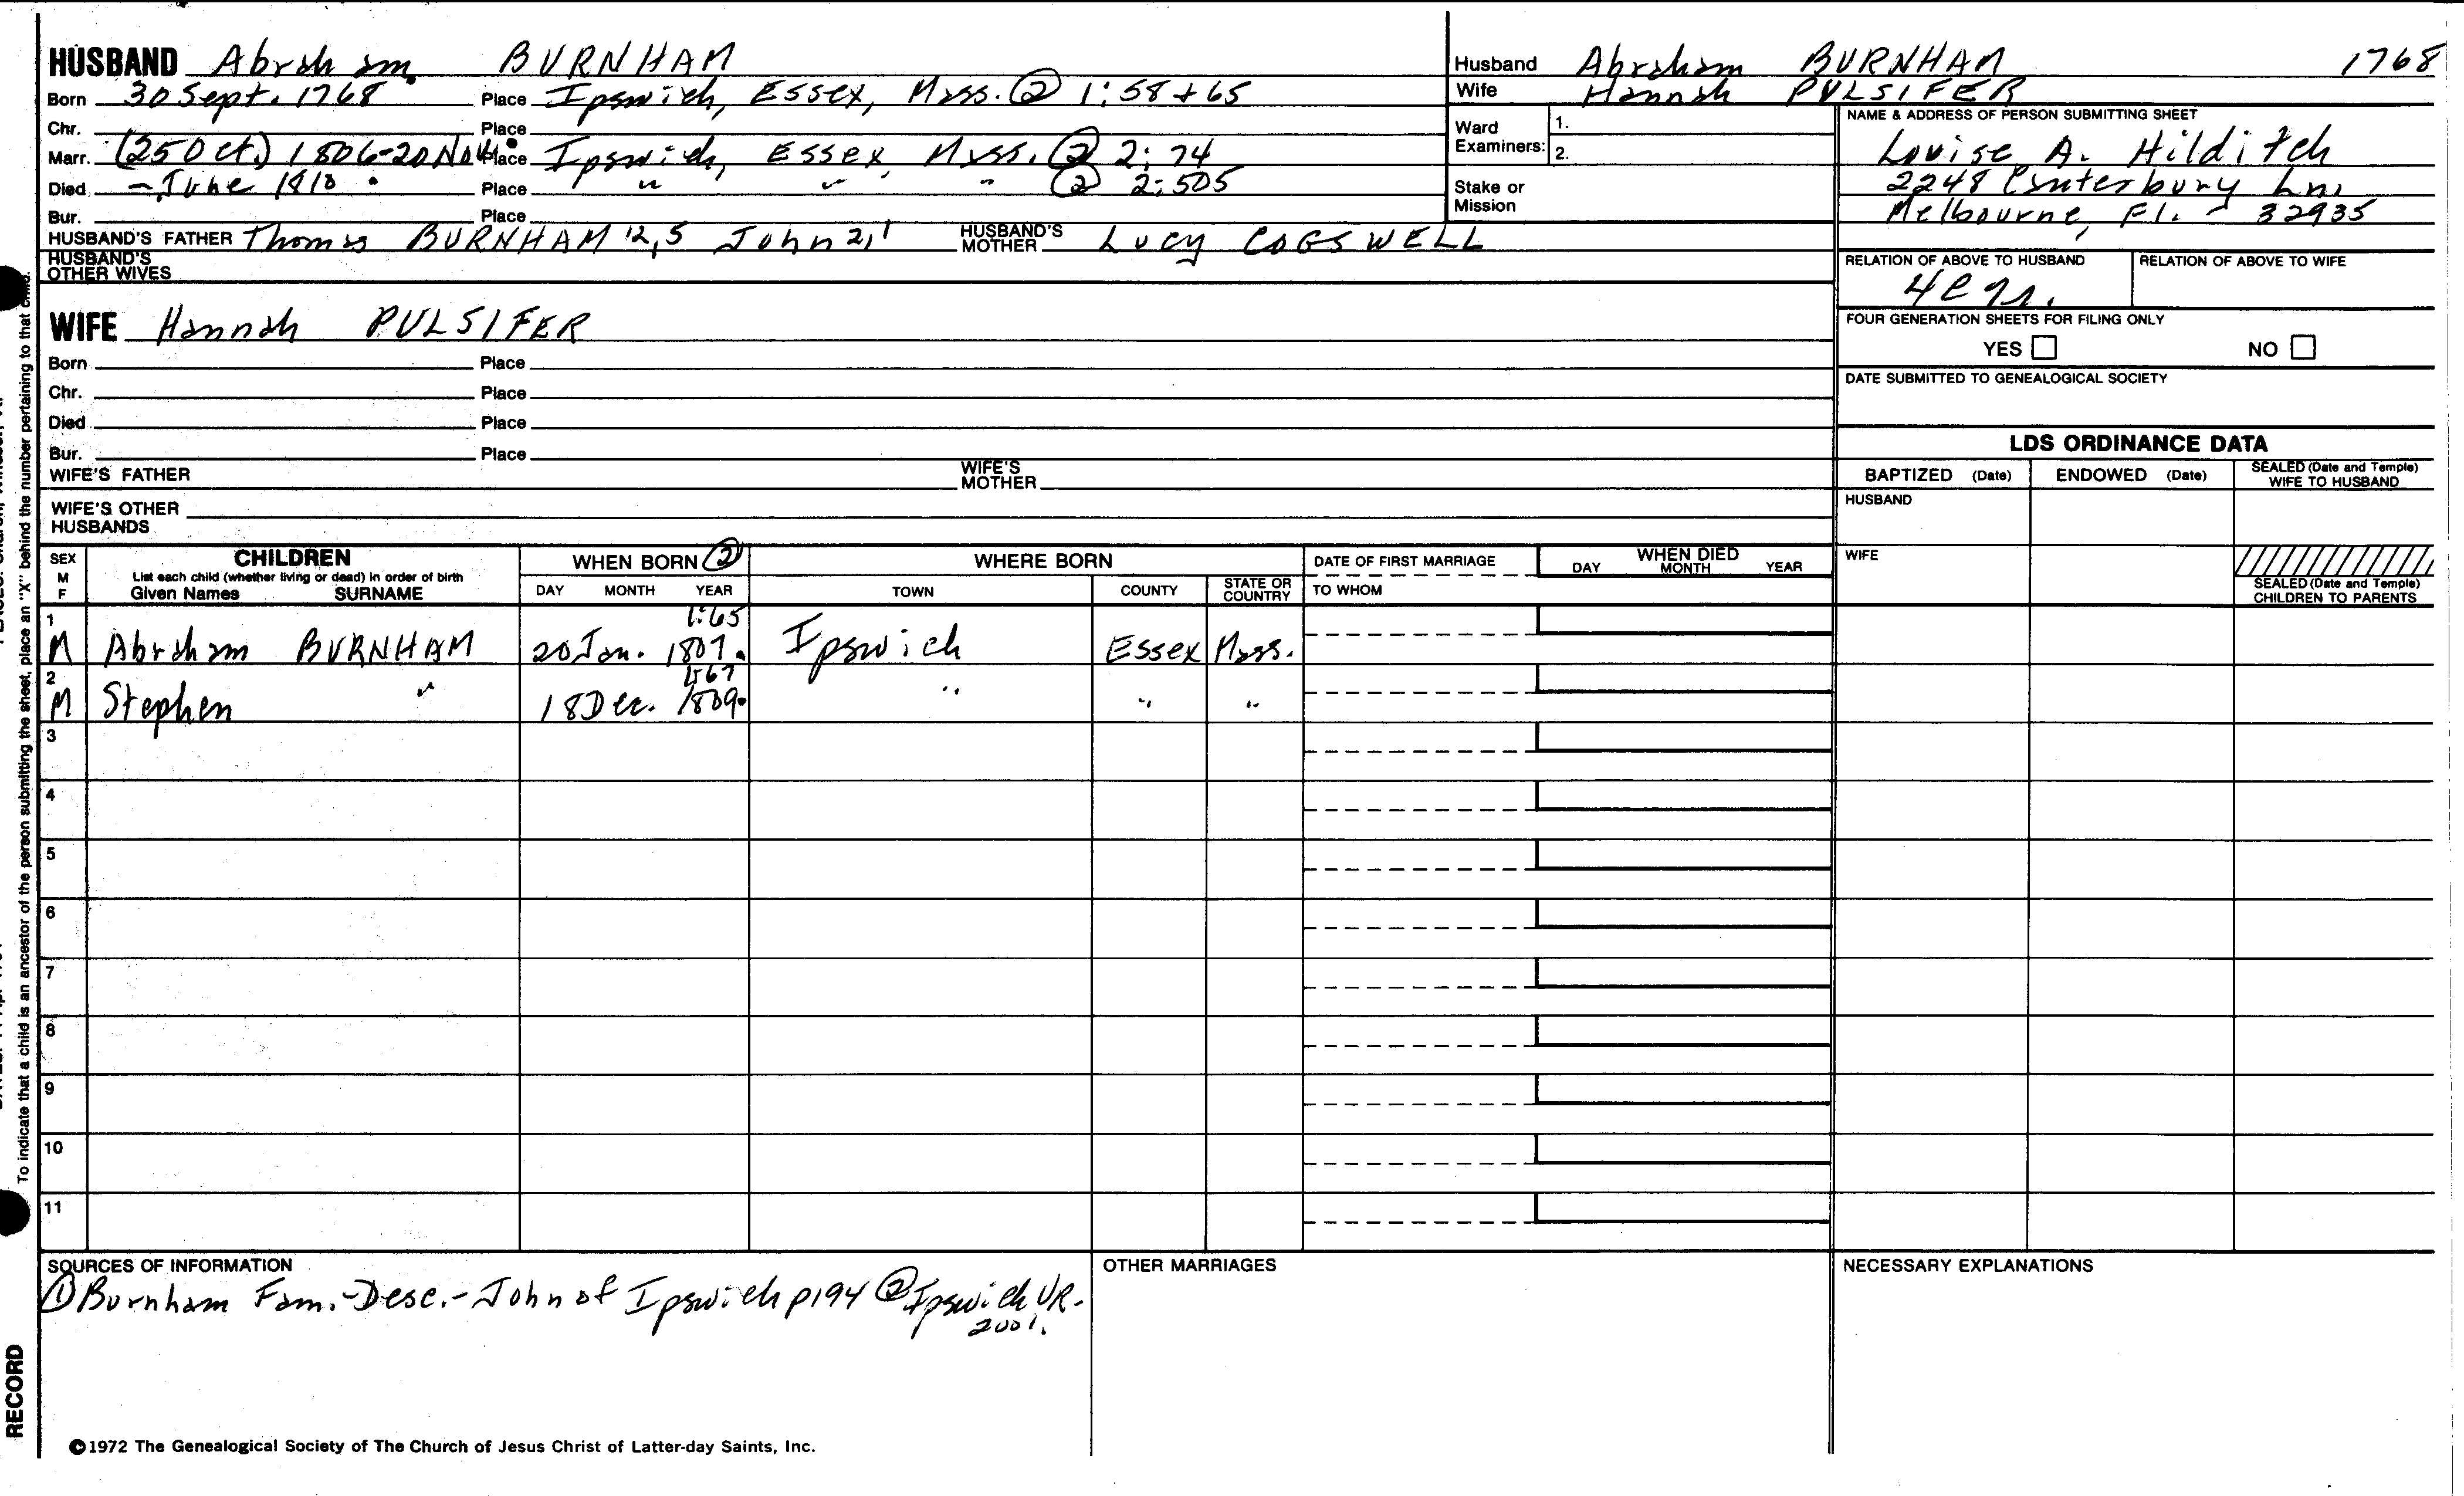 HUSBAND Abraham BURNHAM
Born 30 Sept. 1768 Place Ipswich, Essex, Mass. ② 1:58+65
Chr. Place
Marr. (25 Oct.) 1806-20 Nov. Place Ipswich, Essex, Mass. ② 2:74
Died - June 1810 Place " " " ② 2:505
Bur. Place
HUSBAND'S FATHER Thomas BURNHAM 12,5 John 2,1 HUSBAND'S MOTHER Lucy COGSWELL
HUSBAND'S OTHER WIVES
WIFE Hannah PULSIFER
Born Place
Chr. Place
Died Place
Bur. Place
WIFE'S FATHER WIFE'S MOTHER
WIFE'S OTHER HUSBANDS
Husband Abraham BURNHAM 1768
Wife Hannah PULSIFER
Ward Examiners: 1.
2.
Stake or Mission
NAME & ADDRESS OF PERSON SUBMITTING SHEET
Louise A. Hilditch
2248 Canterbury Ln.
Melbourne, Fl. - 32935
RELATION OF ABOVE TO HUSBAND RELATION OF ABOVE TO WIFE
FOUR GENERATION SHEETS FOR FILING ONLY
YES NO
DATE SUBMITTED TO GENEALOGICAL SOCIETY
LDS ORDINANCE DATA
BAPTIZED (Date) ENDOWED (Date) SEALED (Date and Temple) WIFE TO HUSBAND
HUSBAND
WIFE
SEALED (Date and Temple) CHILDREN TO PARENTS
SEX M F
CHILDREN
List each child (whether living or dead) in order of birth
Given Names SURNAME
WHEN BORN ②
DAY MONTH YEAR
WHERE BORN
TOWN COUNTY STATE OR COUNTRY
DATE OF FIRST MARRIAGE
TO WHOM
WHEN DIED
DAY MONTH YEAR
1:65
1 M Abraham BURNHAM 20 Jan. 1807. Ipswich Essex Mass.
1:67
2 M Stephen " 18 Dec. 1809. " " "
3
4
5
6
7
8
9
10
11
SOURCES OF INFORMATION
① Burnham Fam.-Desc.-John of Ipswich p194 ② Ipswich VR.
2001.
OTHER MARRIAGES
NECESSARY EXPLANATIONS
©1972 The Genealogical Society of The Church of Jesus Christ of Latter-day Saints, Inc.
To indicate that a child is an ancestor of the person submitting the sheet, place an "X" behind the number pertaining to that child.
RECORD